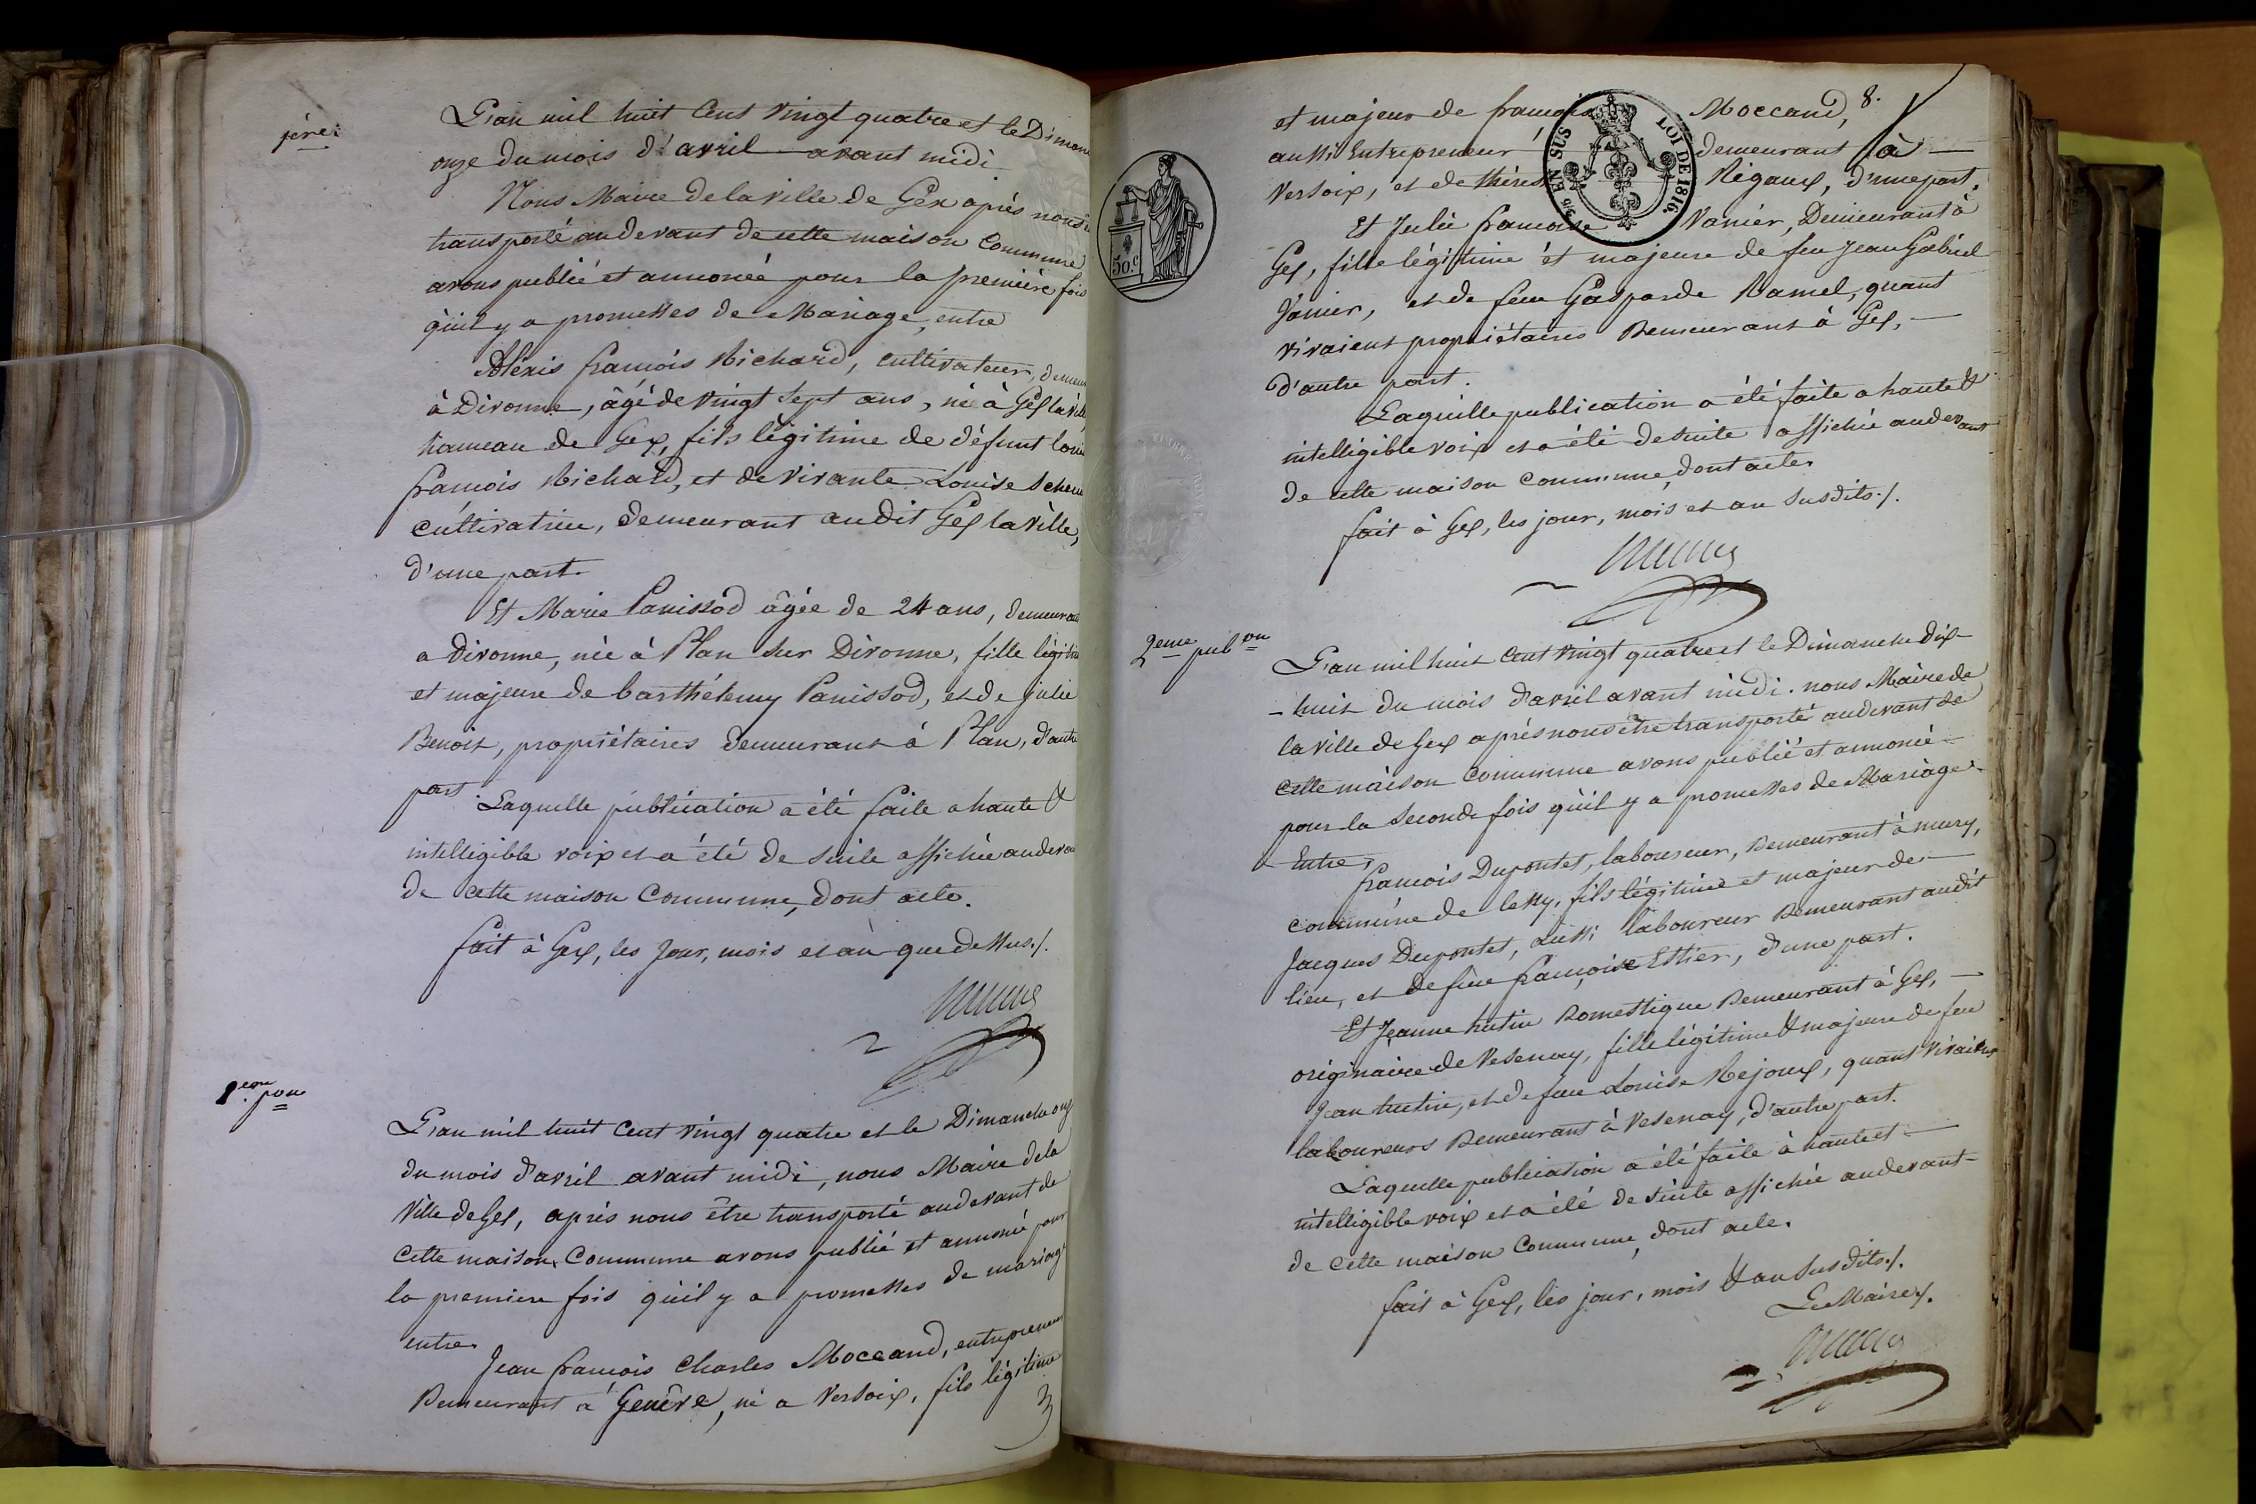 1ère
L'an mil huit Cent vingt quatre et le Diman
onze du mois d'avril avant midi
Nous Maire de la ville de Gex après nous
transporté au devant de cette maison Commune
avons publié et annoncé pour la première fois
qu'il y a promesses de Mariage, entre
Aléxis françois Richard, cultivateur, demeu
à Divonne, âgé de vingt sept ans, né à Gex la ville
hameau de Gex, fils légitime de défunt loui
françois Richard, et de vivante Louise
cultivatrice, demeurant audit Gex la ville,
d'une part.
Et Marie Panissod âgée de 24 ans, demeurant
a divonne, née à Plan sur Divonne, fille légitim
et majeure de barthélemy Panissod, et de julie
Benoit, propriétaires demeurant à Plan, d'autre
part.
Laquelle publication a été faite a haute &
intelligible voix et a été de suite affichée audeva
de cette maison Commune, dont acte.
fait à Gex, les jour, mois et an que dessus./.
1.ere pon
L'an mil huit cent vingt quatre et le Dimanche onz
du mois d'avril avant midi, nous Maire de la
Ville de Gex, après nous être transporté audevant de
cette maison Commune avons publié et annoncé pour
la premiere fois qu'il y a promesses de mariage
entre
Jean françois Charles Moccand, entrepreneur
Demeurant à Genève, né a Versoix, fils légitime
8.
et majeur de françois Moccand,
aussi Entrepreneur demeurant à
Versoix, et de thérèse Régaux, d'une part.
Et Julie françoise Vanier, Demeurant à
Gex, fille légitime et majeure de feu Jean Gabriel
Vanier, et de feue Gasparde Ramel, quant
vivaient propriétaires Demeurant à Gex,
d'autre part.
Laquelle publication a été faite a haute &
intelligible voix et a été de suite affichée audevant
de cette maison commune, dont acte.
fait à Gex, les jour, mois et an susdits./.
50.c
5/6 EN SUS
LOI DE 1816.
2eme pubon
L'an mil huit cent vingt quatre et le Dimanche dix-
-huit du mois d'avril avant midi. nous Maire de
la ville de Gex après nous être transporté audevant de
cette maison commune avons publié et annoncé
pour la seconde fois qu'il y a promesses de Mariage
Entre,
françois Dupontet, laboureur, Demeurant à mury,
commune de Cessy, fils légitime et majeur de
Jacques Dupontet, aussi laboureur Demeurant audit
lieu, et de feue françoise Ethier, d'une part.
Et Jeanne hutin Domestique Demeurant à Gex,
originaire de Vesenay, fille légitime & majeure de feu
Jean hutin, et de feue Louise Rejoux, quant vivaient
laboureurs Demeurant à Vesenay, d'autre part.
Laquelle publication a été faite à haute et
intelligible voix et a été de suite affichée audevant
de cette maison Commune, dont acte.
fait à Gex, les jour, mois & an susdits./.
Le Maire./.